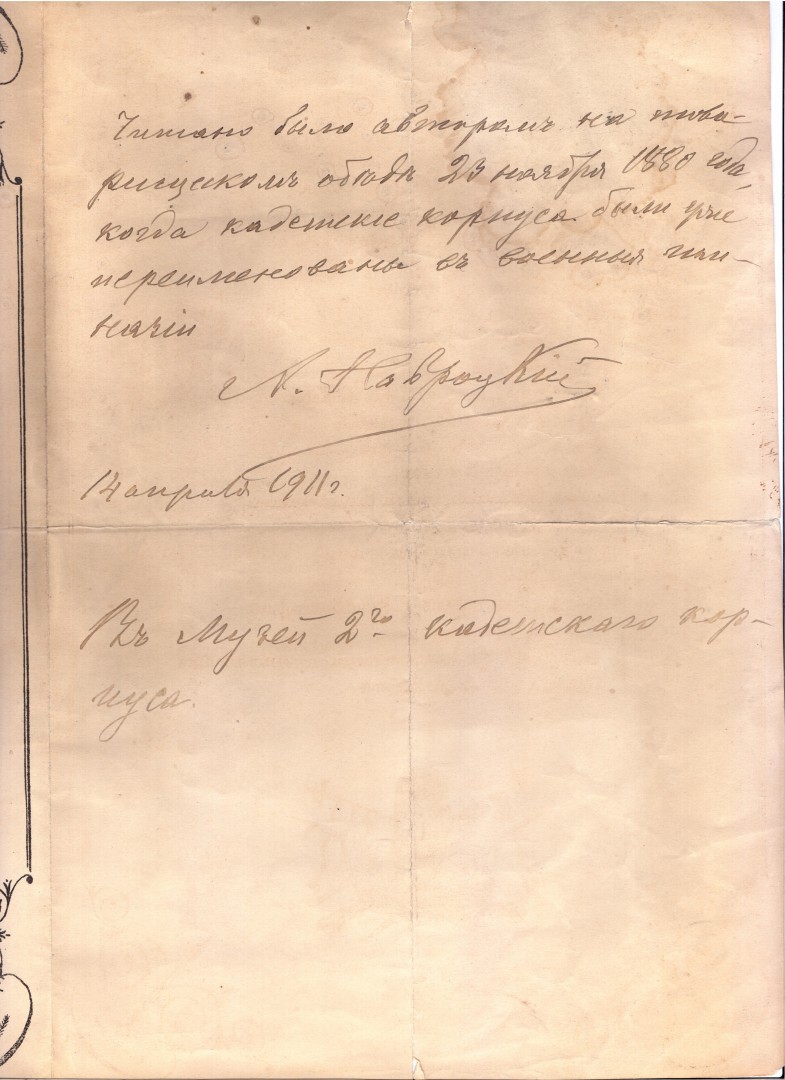 Читано было авторомъ на това-
рищескомъ обѣдѣ 23 ноября 1880 года,
когда кадетскіе корпуса были уже
переименованы въ военныя гим-
назіи
А. Навроцкій
14 апрѣля 1911 г.
Въ Музей 2го кадетскаго кор-
пуса.